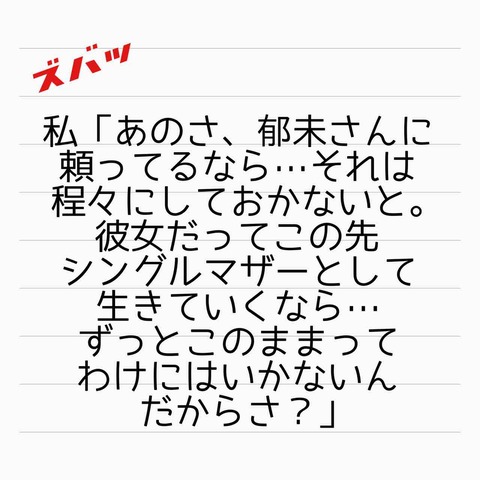 ズバッ
私「あのさ、郁未さんに
頼ってるなら…それは
程々にしておかないと。
彼女だってこの先
シングルマザーとして
生きていくなら…
ずっとこのままって
わけにはいかないん
だからさ？」